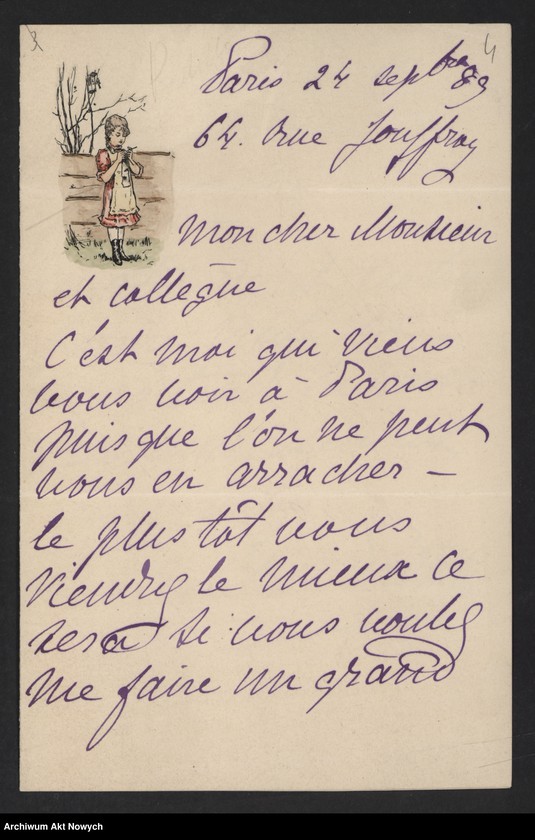 4
Paris 24 septbre 89
64. Rue Jouffroy
mon cher Monsieur
et collègue
C'est moi qui viens
vous voir à Paris
puisque l'on ne peut
vous en arracher –
le plus tôt vous
viendrez le mieux ce
sera si vous voulez
me faire un grand
Archiwum Akt Nowych